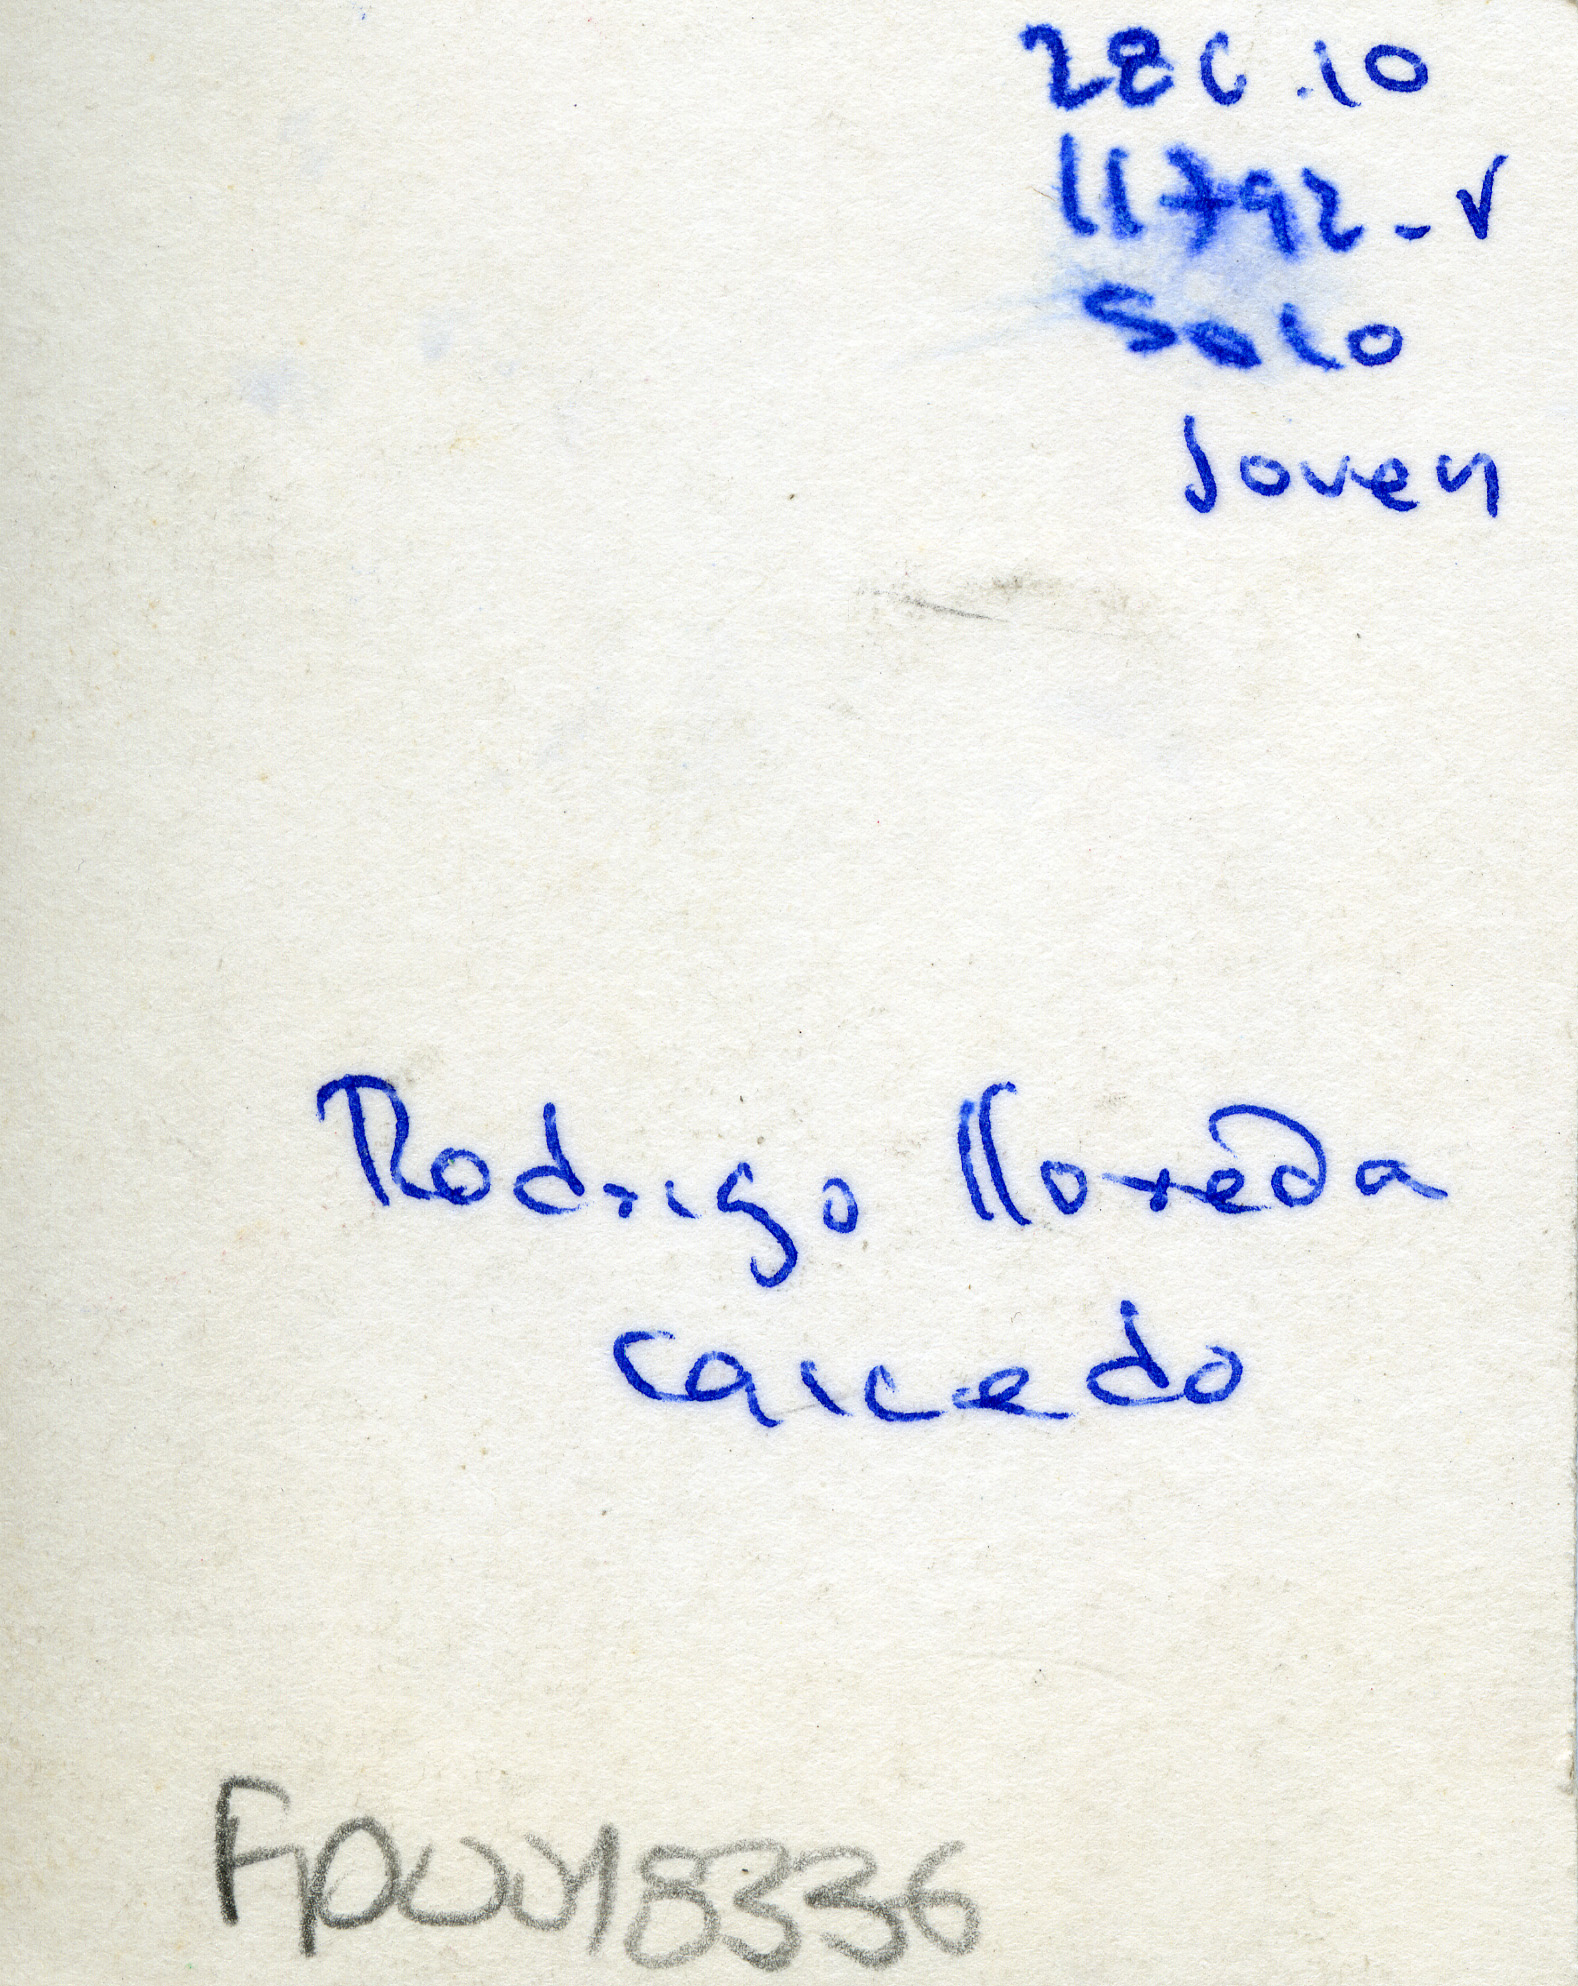 286.10
11792-V
Solo
Joven
Rodrigo Lloreda
Caicedo
Fp0018336